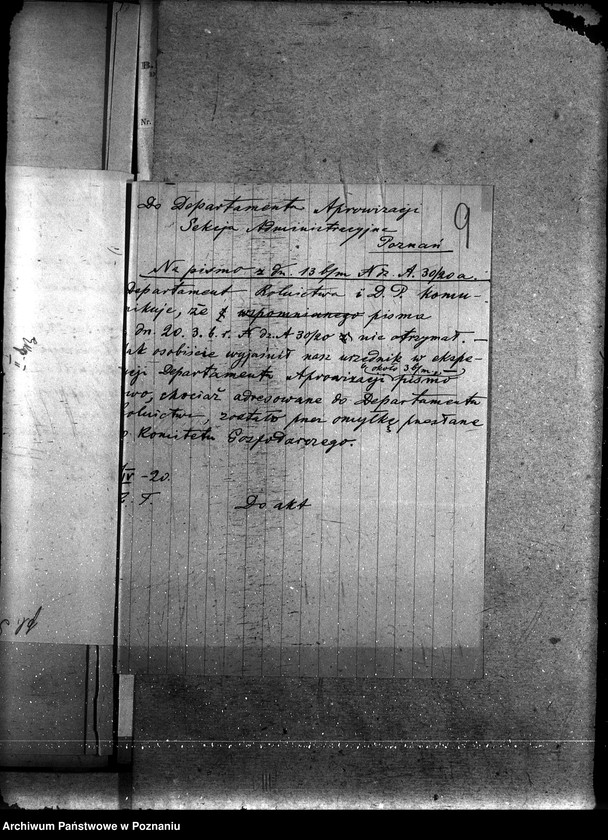 B.
Nr.
9
Do Departamentu Aprowizacji
Sekcja Administracyjna
Poznań
Na pismo z dn. 13 b/m N dz. A. 30/20 a.
Departament Rolnictwa i D. P. komu-
nikuje, że z wspomnianego pisma
dn. 20. 3. b. r. N dz. A 30/20 nie otrzymał. —
Jak osobiście wyjaśnił nasz urzędnik w ekspe-
około 3 b/m
cji Departamentu Aprowizacji pismo
owo, chociaż adresowane do Departamentu
Rolnictwa, zostało przez omyłkę przesłane
do Komitetu Gospodarczego.
IV - 20.
T.
Do akt
Archiwum Państwowe w Poznaniu